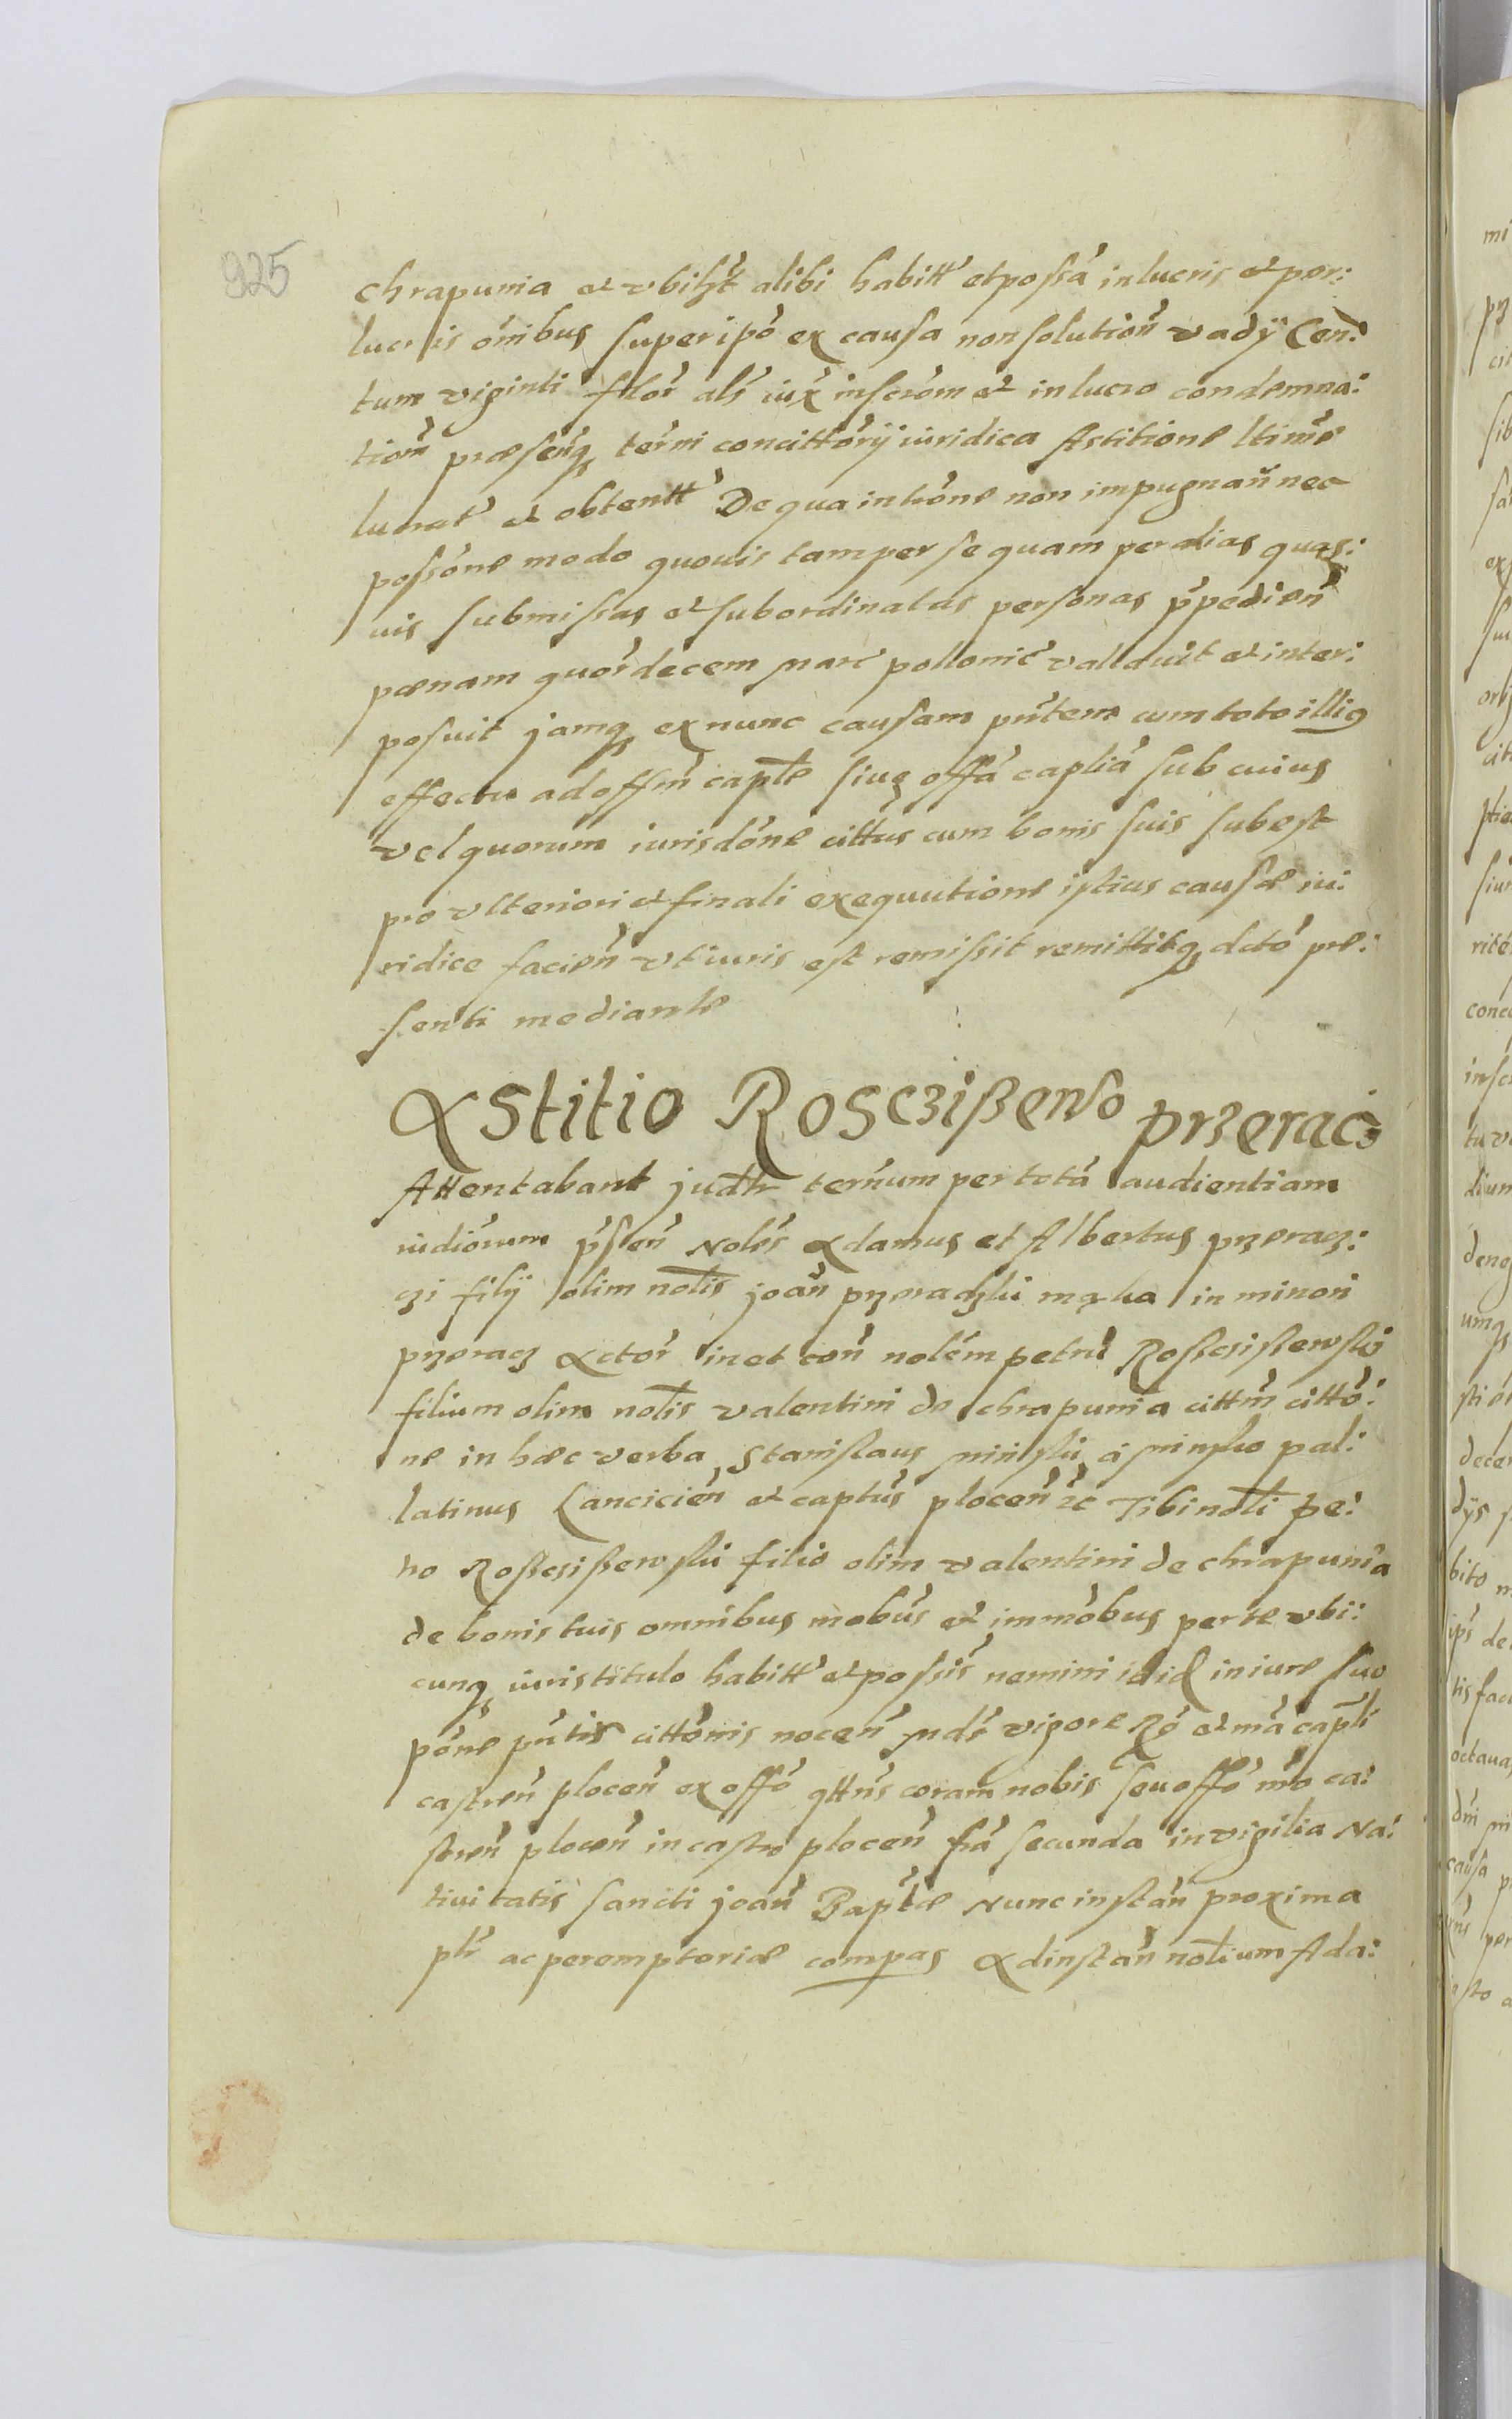 925
chrapunia et vbilz̃t alibi habitt' et possa' in lucris et per:
lucris o'nibus super ipo' ex causa non solution' vadÿ Cen:
tum viginti flor' als' iux' inscro'm et in lucro condemna:
tiom' præsenq' ter'ni concitto'rÿ iuridica Astitione ltime'
lucrat' et obtentt' De qua intro'ne non impugnan' nec
posso'ne modo quouis tam per se quam per alias quas:
uis submissas et subordinatas personas p'pedien'
pænam quor' decem marc' polonic' valauit et inter:
posuit jamq' ex nunc causam pn'tem cum toto illius
effectu ad offm' captle siue offa' caplia' sub cuius
vel quorum iurisdo'ne cittus cum bonis suis subest
pro vlteriori et finali exequutione istius causæ iu:
ridice facien' vt iuris est remissit remittitq' dcto' præ:
senti mediante
Astitio Rosczißewo przeracz
Attentabant judtr ter'num per tota' audientiam
iudio'rum p'sen' Nole's Adamus et Albertus przeracz:
czi filÿ olim notlis joan' przeradzki ma in minori
przeracz Actor' in et con' nole'm petru' Rosscisßewski
filium olim notlis valentini de chrapunia cittm' citto':
ne in hæc verba Stanislaus minski à minsko pal:
latinus Lancicien' et captus' plocen' &c Tibi notli pe:
tro Rosscisßewski filio olim valentini de chrapunia
de bonis tuis omnibus mobus' et immo'bus per te vbi:
cunq' iuris titulo habitt' et possis' nemini id in iure suo
po'ne pn'tis citto'nis nocen' mds' vigore Ro' et ma' capli'
castren' plocen' ex offo' qttn's coram nobis seu offo' nr'o ca:
stren' plocen' in castro plocen' fra' secunda in vigilia Na:
tiuitatis sancti joan' Bap'tæ Nunc instan' proxima
plr' ac peremptoriæ compas Ad instan' notlium Ada: